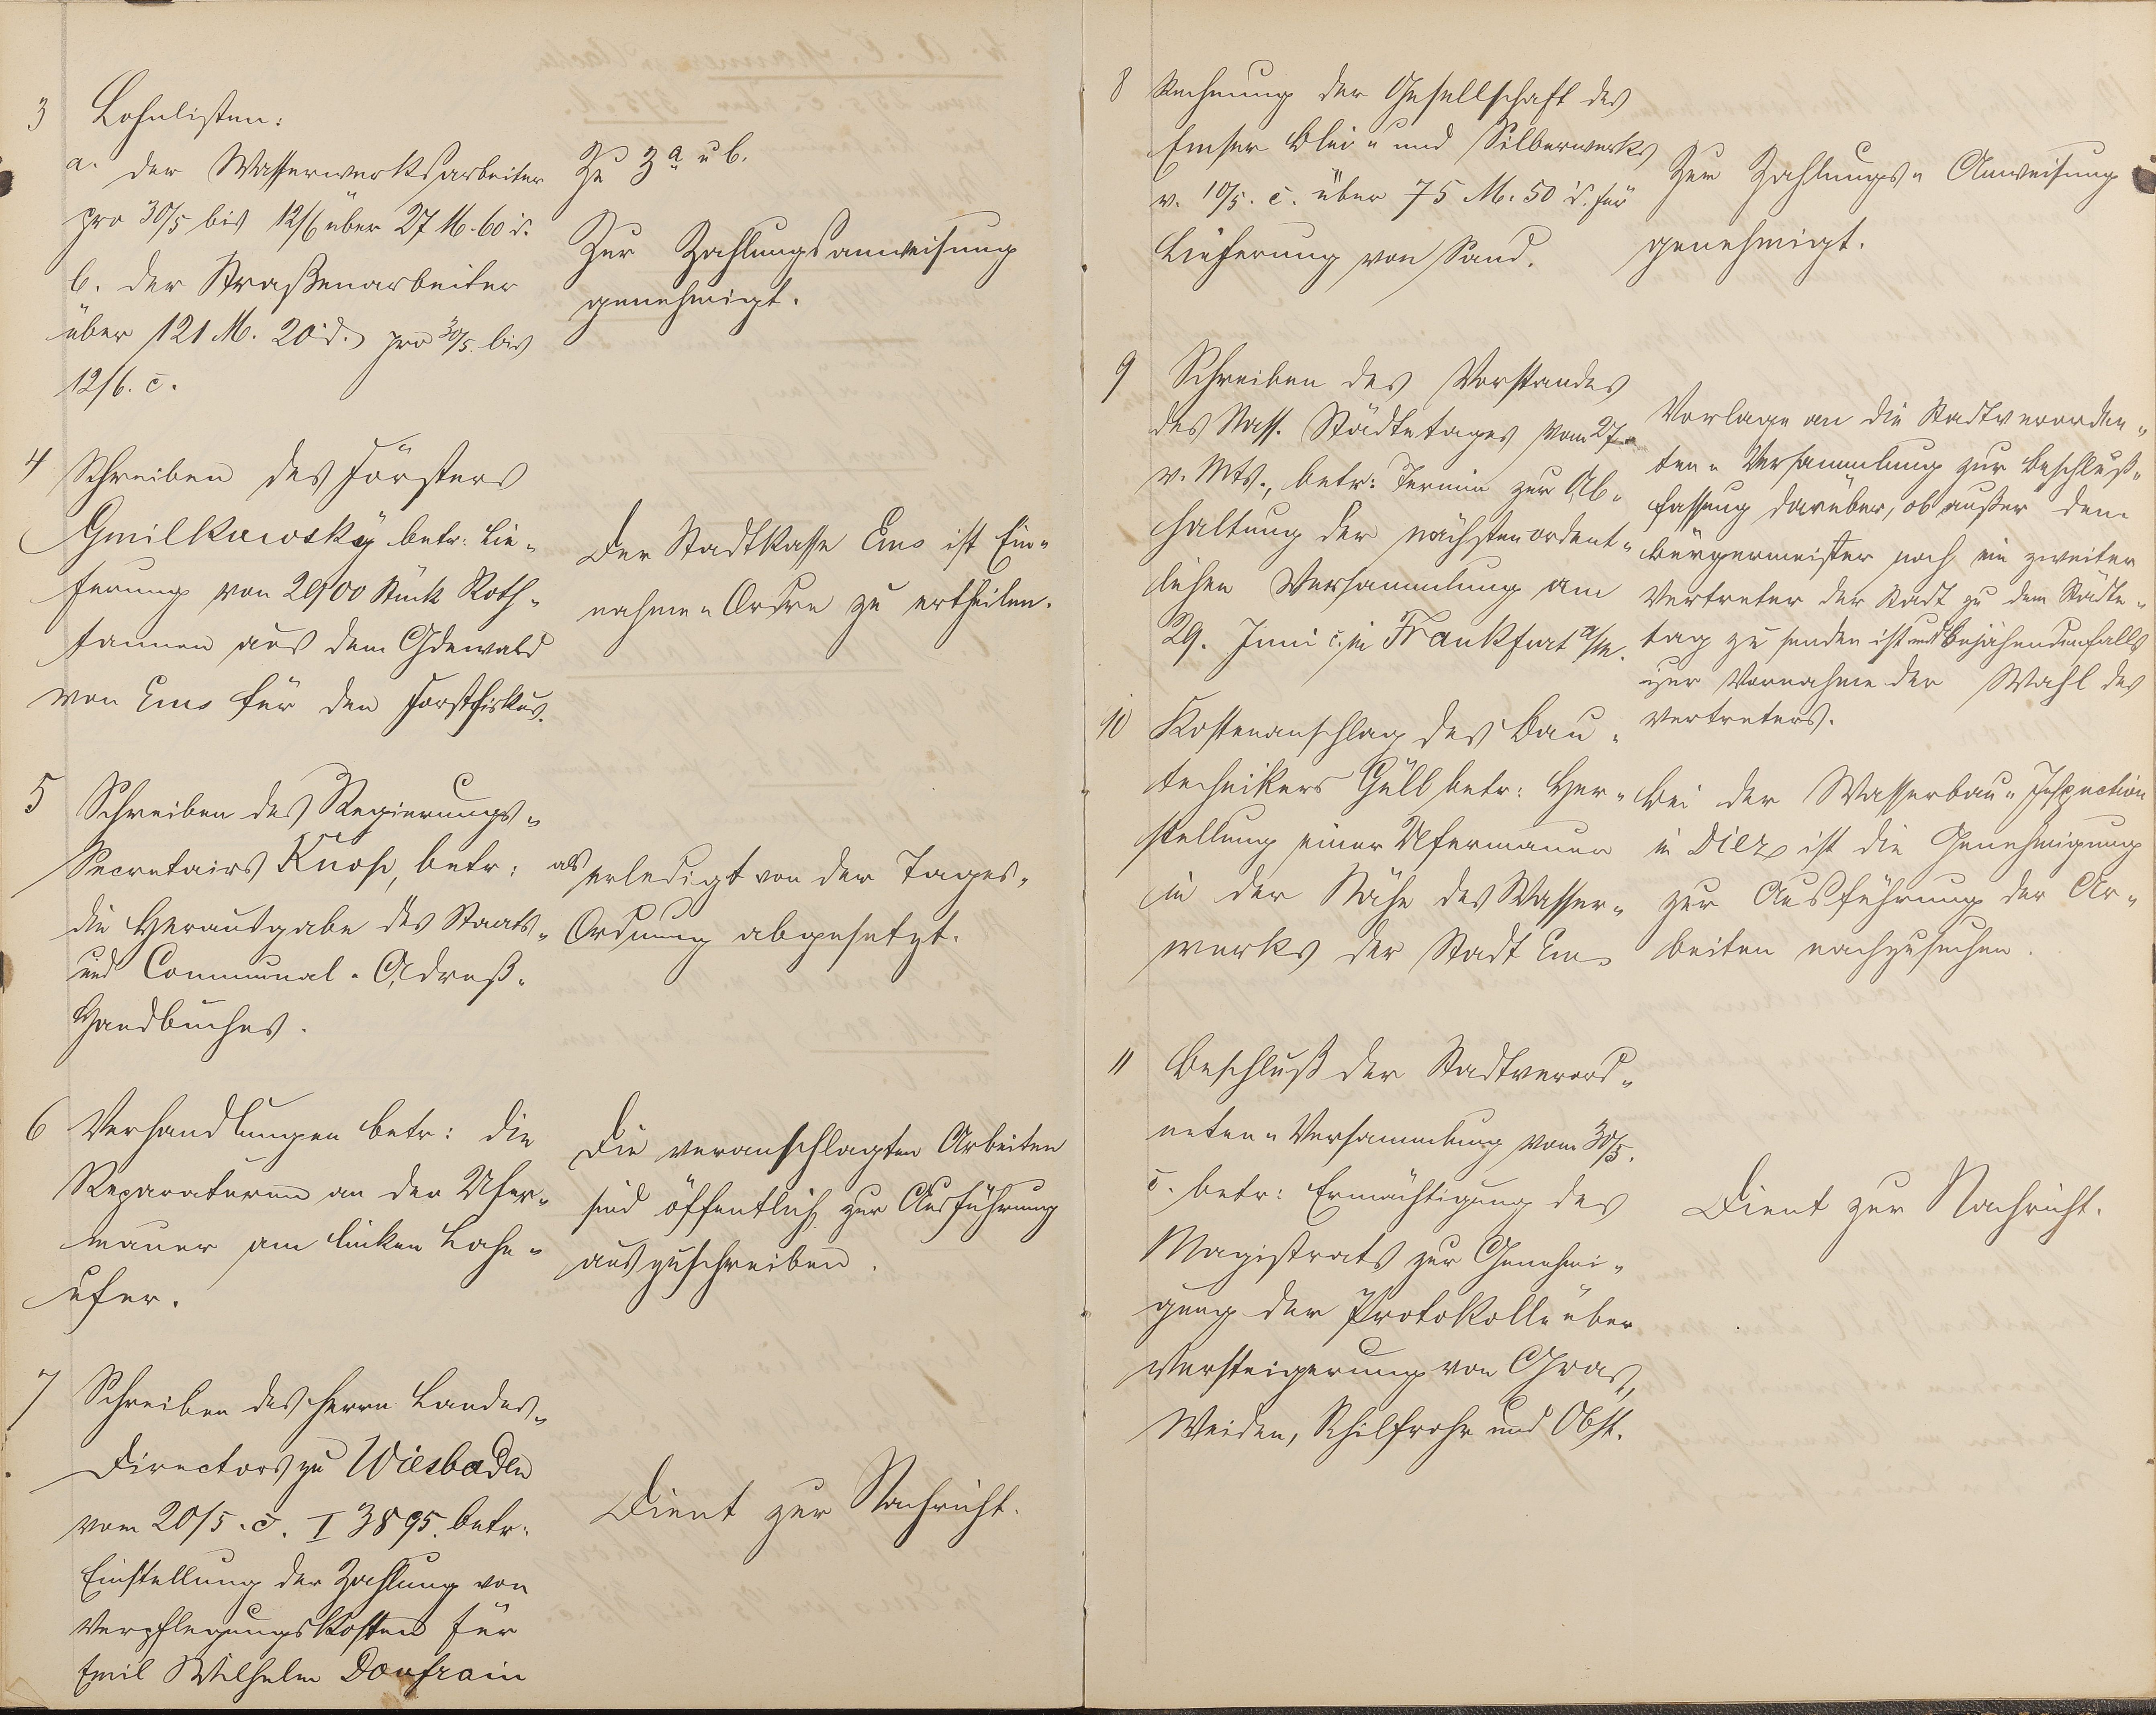 3 Lohnlisten:
a. der Wasserwerksarbeiter
pro 30/5 bis 12/6 über 27 M. 60 d.
b. der Straßenarbeiter
über 121 M. 20 d. pro 30/5. bis
12/6. c.
Zu 3 a u b.
Zur Zahlungsanweisung
genehmigt.
4 Schreiben des Försters
Gmilkowsky betr. Lie-
ferung von 2900 Stück Roth-
tannen aus dem Gdewald
von Ems für den Forstfiskus.
Der Stadtkasse Ems ist Ein-
nahme-Ordre zu ertheilen.
5 Schreiben des Regierungs-
Secretairs Knop, betr:
die Herausgabe des Staats-
und Communal-Adreß-
Handbuches.
als erledigt von der Tages-
Ordnung abgesetzt.
6 Verhandlungen betr: die
Reparaturen an der Ufer-
mauer am linken Lahn-
ufer.
Die veranschlagten Arbeiten
sind öffentlich zur Ausführung
auszuschreiben.
7 Schreiben des Herrn Landes-
Directors zu Wiesbaden
vom 20/5. c. I 3895. betr.
Einstellung der Zahlung von
Verpflegungskosten für
Emil Wilhelm Donfrain
Dient zur Nachricht.
8 Rechnung der Gesellschaft des
Emser Blei- und Silberwerks
v. 10/5. c. über 75 M. 50 d. für
Lieferung von Sand.
Zur Zahlungs-Anweisung
genehmigt.
9 Schreiben des Vorstandes
des Nass. Städtetages vom 27
v. Mts., betr: Termin zur Ab-
haltung der nächsten ordent-
lichen Versammlung am
29. Juni c. in Frankfurt a/M.
Vorlage an die Stadtverordne-
ten-Versammlung zur Beschluß-
fassung darüber, ob außer dem
Bürgermeister noch ein zweiter
Vertreter der Stadt zu dem Städte-
tag zu senden ist und bejahendenfalls
zur Vornahme der Wahl des
Vertreters.
10 Kostenanschlag des Bau-
technikers Güll betr: Her-
stellung einer Ufermauer
in der Nähe des Wasser-
werks der Stadt Ems
Bei der Wasserbau-Inspection
in Diez ist die Genehmigung
zur Ausführung der Ar-
beiten nachzusuchen.
11 Beschluß der Stadtverord-
neten-Versammlung vom 30/5.
c. betr: Ermächtigung des
Magistrats zur Genehmi-
gung der Protokolle über
Versteigerung von Gras,
Weiden, Schilfrohr und Obst.
Dient zur Nachricht.